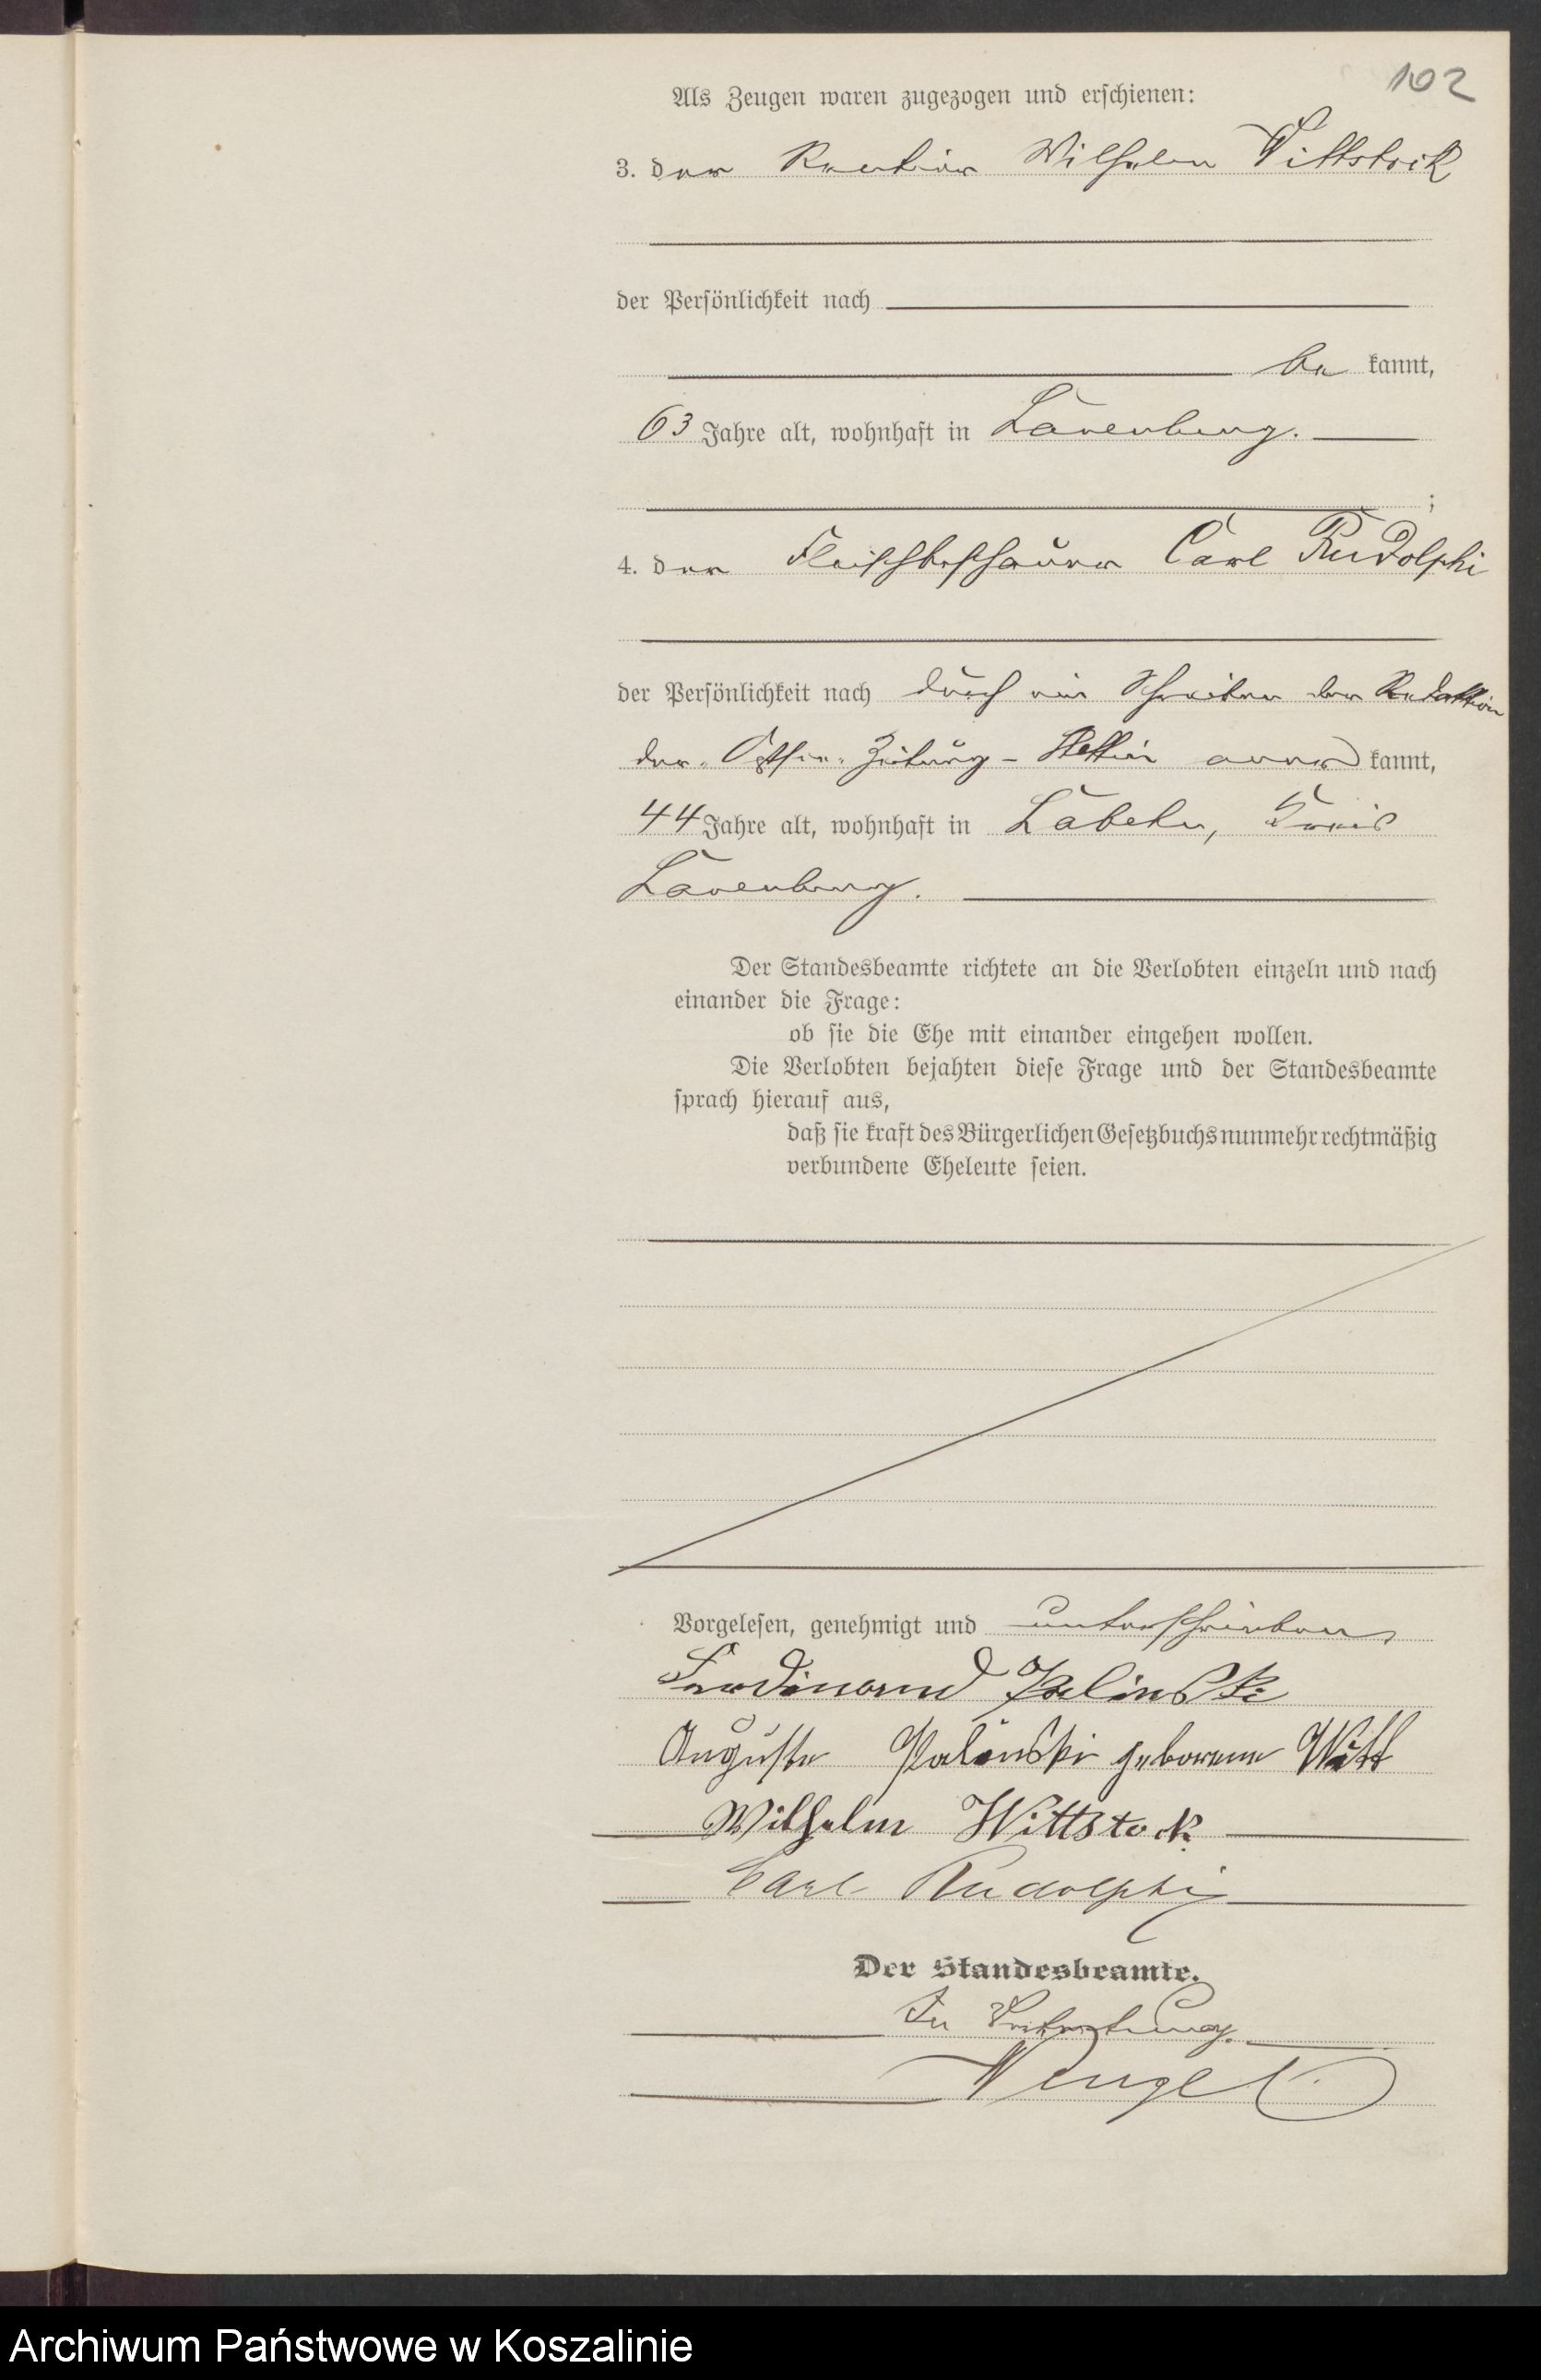 102
Als Zeugen waren zugezogen und erschienen:
3. der Rentier Wilhelm Wittstock
der Persönlichkeit nach
be kannt,
63 Jahre alt, wohnhaft in Lauenburg.
;
4. der Fleischbeschauer Carl Rudolphi
der Persönlichkeit nach durch ein Schreiben der Redaktion
der Ostsee-Zeitung-Stettin aner kannt,
44 Jahre alt, wohnhaft in Labehn, Kreis
Lauenburg.
Der Standesbeamte richtete an die Verlobten einzeln und nach
einander die Frage:
ob sie die Ehe mit einander eingehen wollen.
Die Verlobten bejahten diese Frage und der Standesbeamte
sprach hierauf aus,
daß sie kraft des Bürgerlichen Gesetzbuchs nunmehr rechtmäßig
verbundene Eheleute seien.
Vorgelesen, genehmigt und unterschrieben
Ferdinand Palinski
Auguste Palinski geborene Witt
Wilhelm Wittstock
Carl Rudolphi
Der Standesbeamte.
In Vertretung.
Archiwum Państwowe w Koszalinie